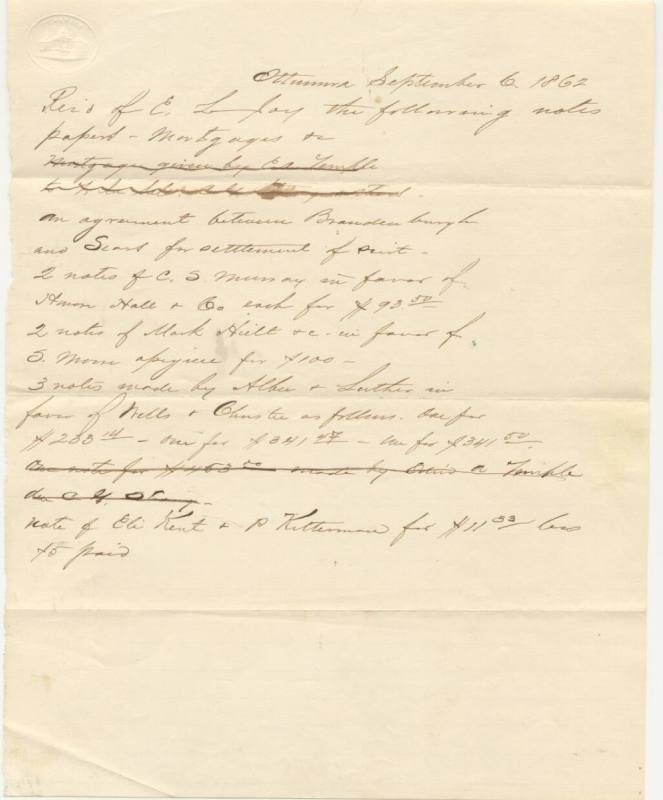 Ottumwa September 6. 1862
Recd of E. L Joy the following notes
papers - Mortgages &c
Mortgage given by E A Temple
to
an agreement between Brandenburgh
and Sears for settlement of suit -
2 notes of C. S. Murray in favor of
Hall & Co each for $93 50
2 notes of Mark Hiett &c - in favor of
S. Moore apiece for $100 -
3 notes made by Alber & Luther in
favor of Wells & Christie as follows. One for
$233 14 - One for $341 47 - One for $341 50.
One note for $453 00 made by A Temple
note of Eli Kent & P Kitterman for $11 33 less
$5 paid